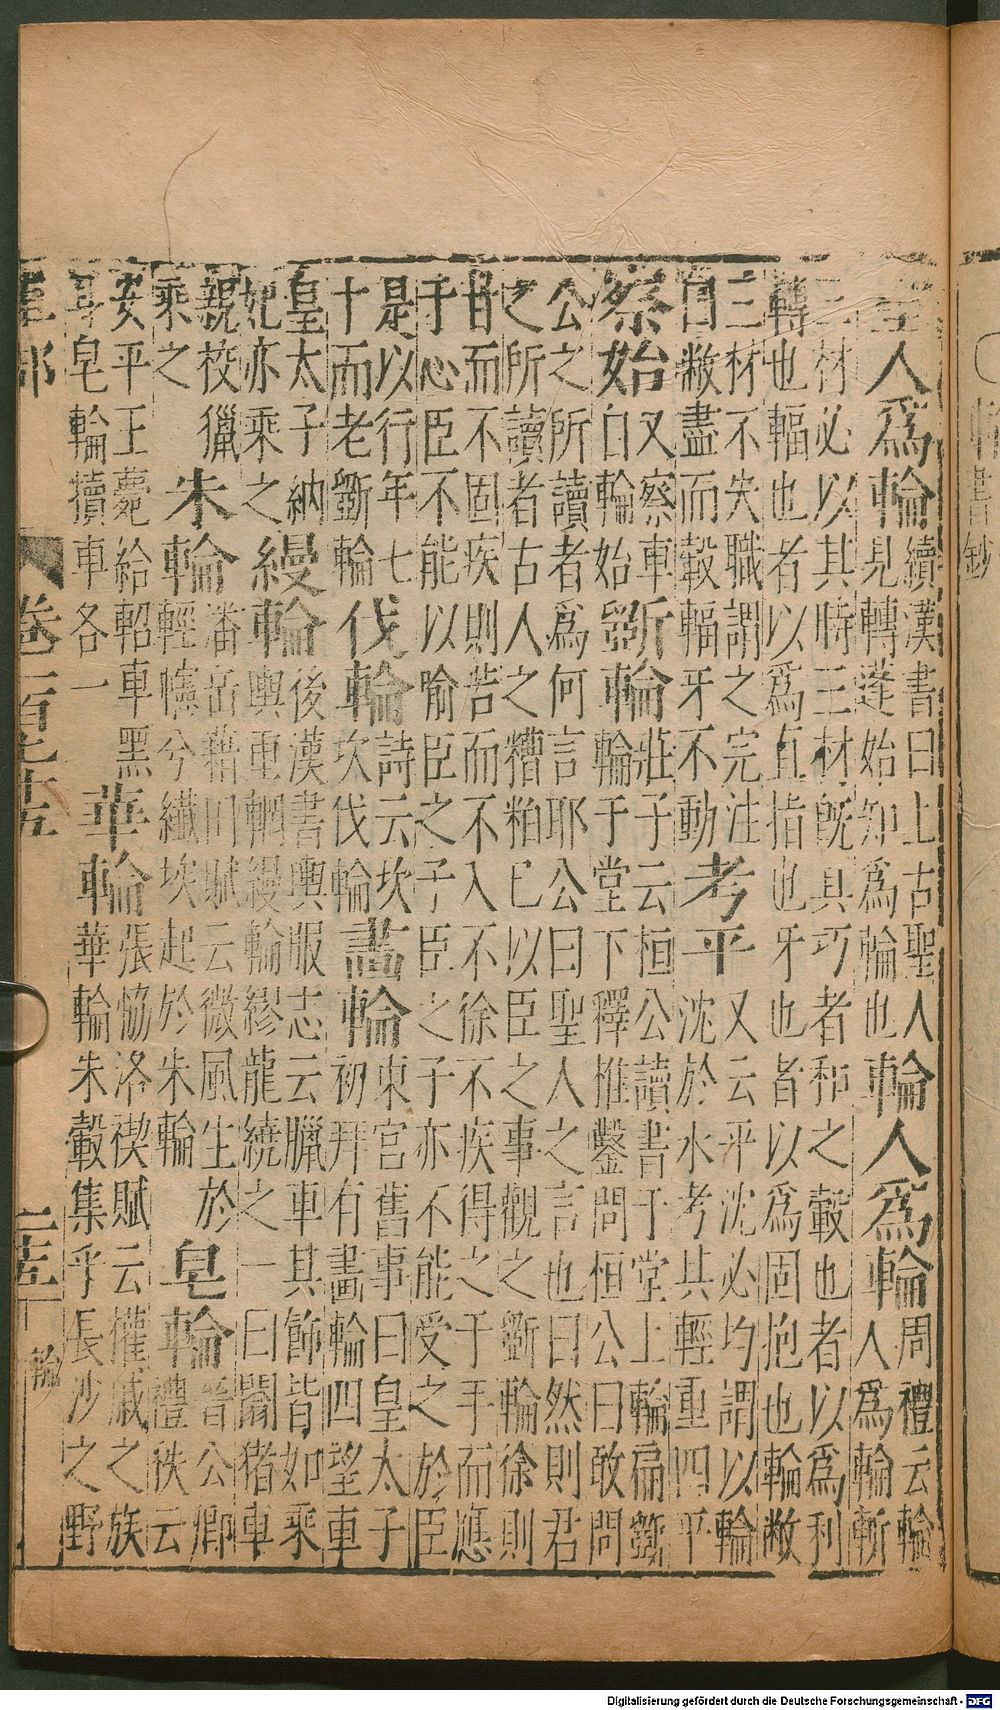 聖人爲輪 續漢書曰上古聖人
見轉蓬始知爲輪也 輪人爲輪 周禮云輪
人爲輪斬
三材必以其時三材旣具巧者和之轂也者以爲利
轉也輻也者以爲直指也牙也者以爲固抱也輪敝
三材不失職謂之完注
自敝盡而轂輻牙不動 考平 又云平沈必均謂以輪
沈於水考其輕重四平
察始 又察車
自輪始 斲輪 莊子云桓公讀書于堂上輪扁斲
輪于于堂下釋椎鑿問桓公曰敢問
公之所讀者爲何言耶公曰聖人之言也曰然則君
之所讀者古人之糟粕已以臣之事觀之斲輪徐則
甘而不固疾則苦而不入不徐不疾得之于手而應
于心臣不能以喻臣之子臣之子亦不能受之於臣
是以行年七
十而老斲輪 伐輪 詩云坎
坎伐輪 畫輪 東宮舊事曰皇太子
初拜有畫輪四望車
皇太子納
妃亦乘之 縵輪 後漢書輿服志云臘車其飾皆如乘
輿重輞縵輪繆龍繞之一曰闟猪車
親校獵
乘之 朱輪 潘岳藉田賦云微風生於
輕幰兮纖埃起於朱輪 皂輪 晉公卿
禮秩云
安平王薨給軺車黑
耳皂輪犢車各一 華輪 張協洛禊賦云權戚之族
華輪朱轂集乎長沙之野
車部 卷一百 五 輪
書鈔
Digitalisierung gefördert durch die Deutsche Forschungsgemeinschaft - DFG